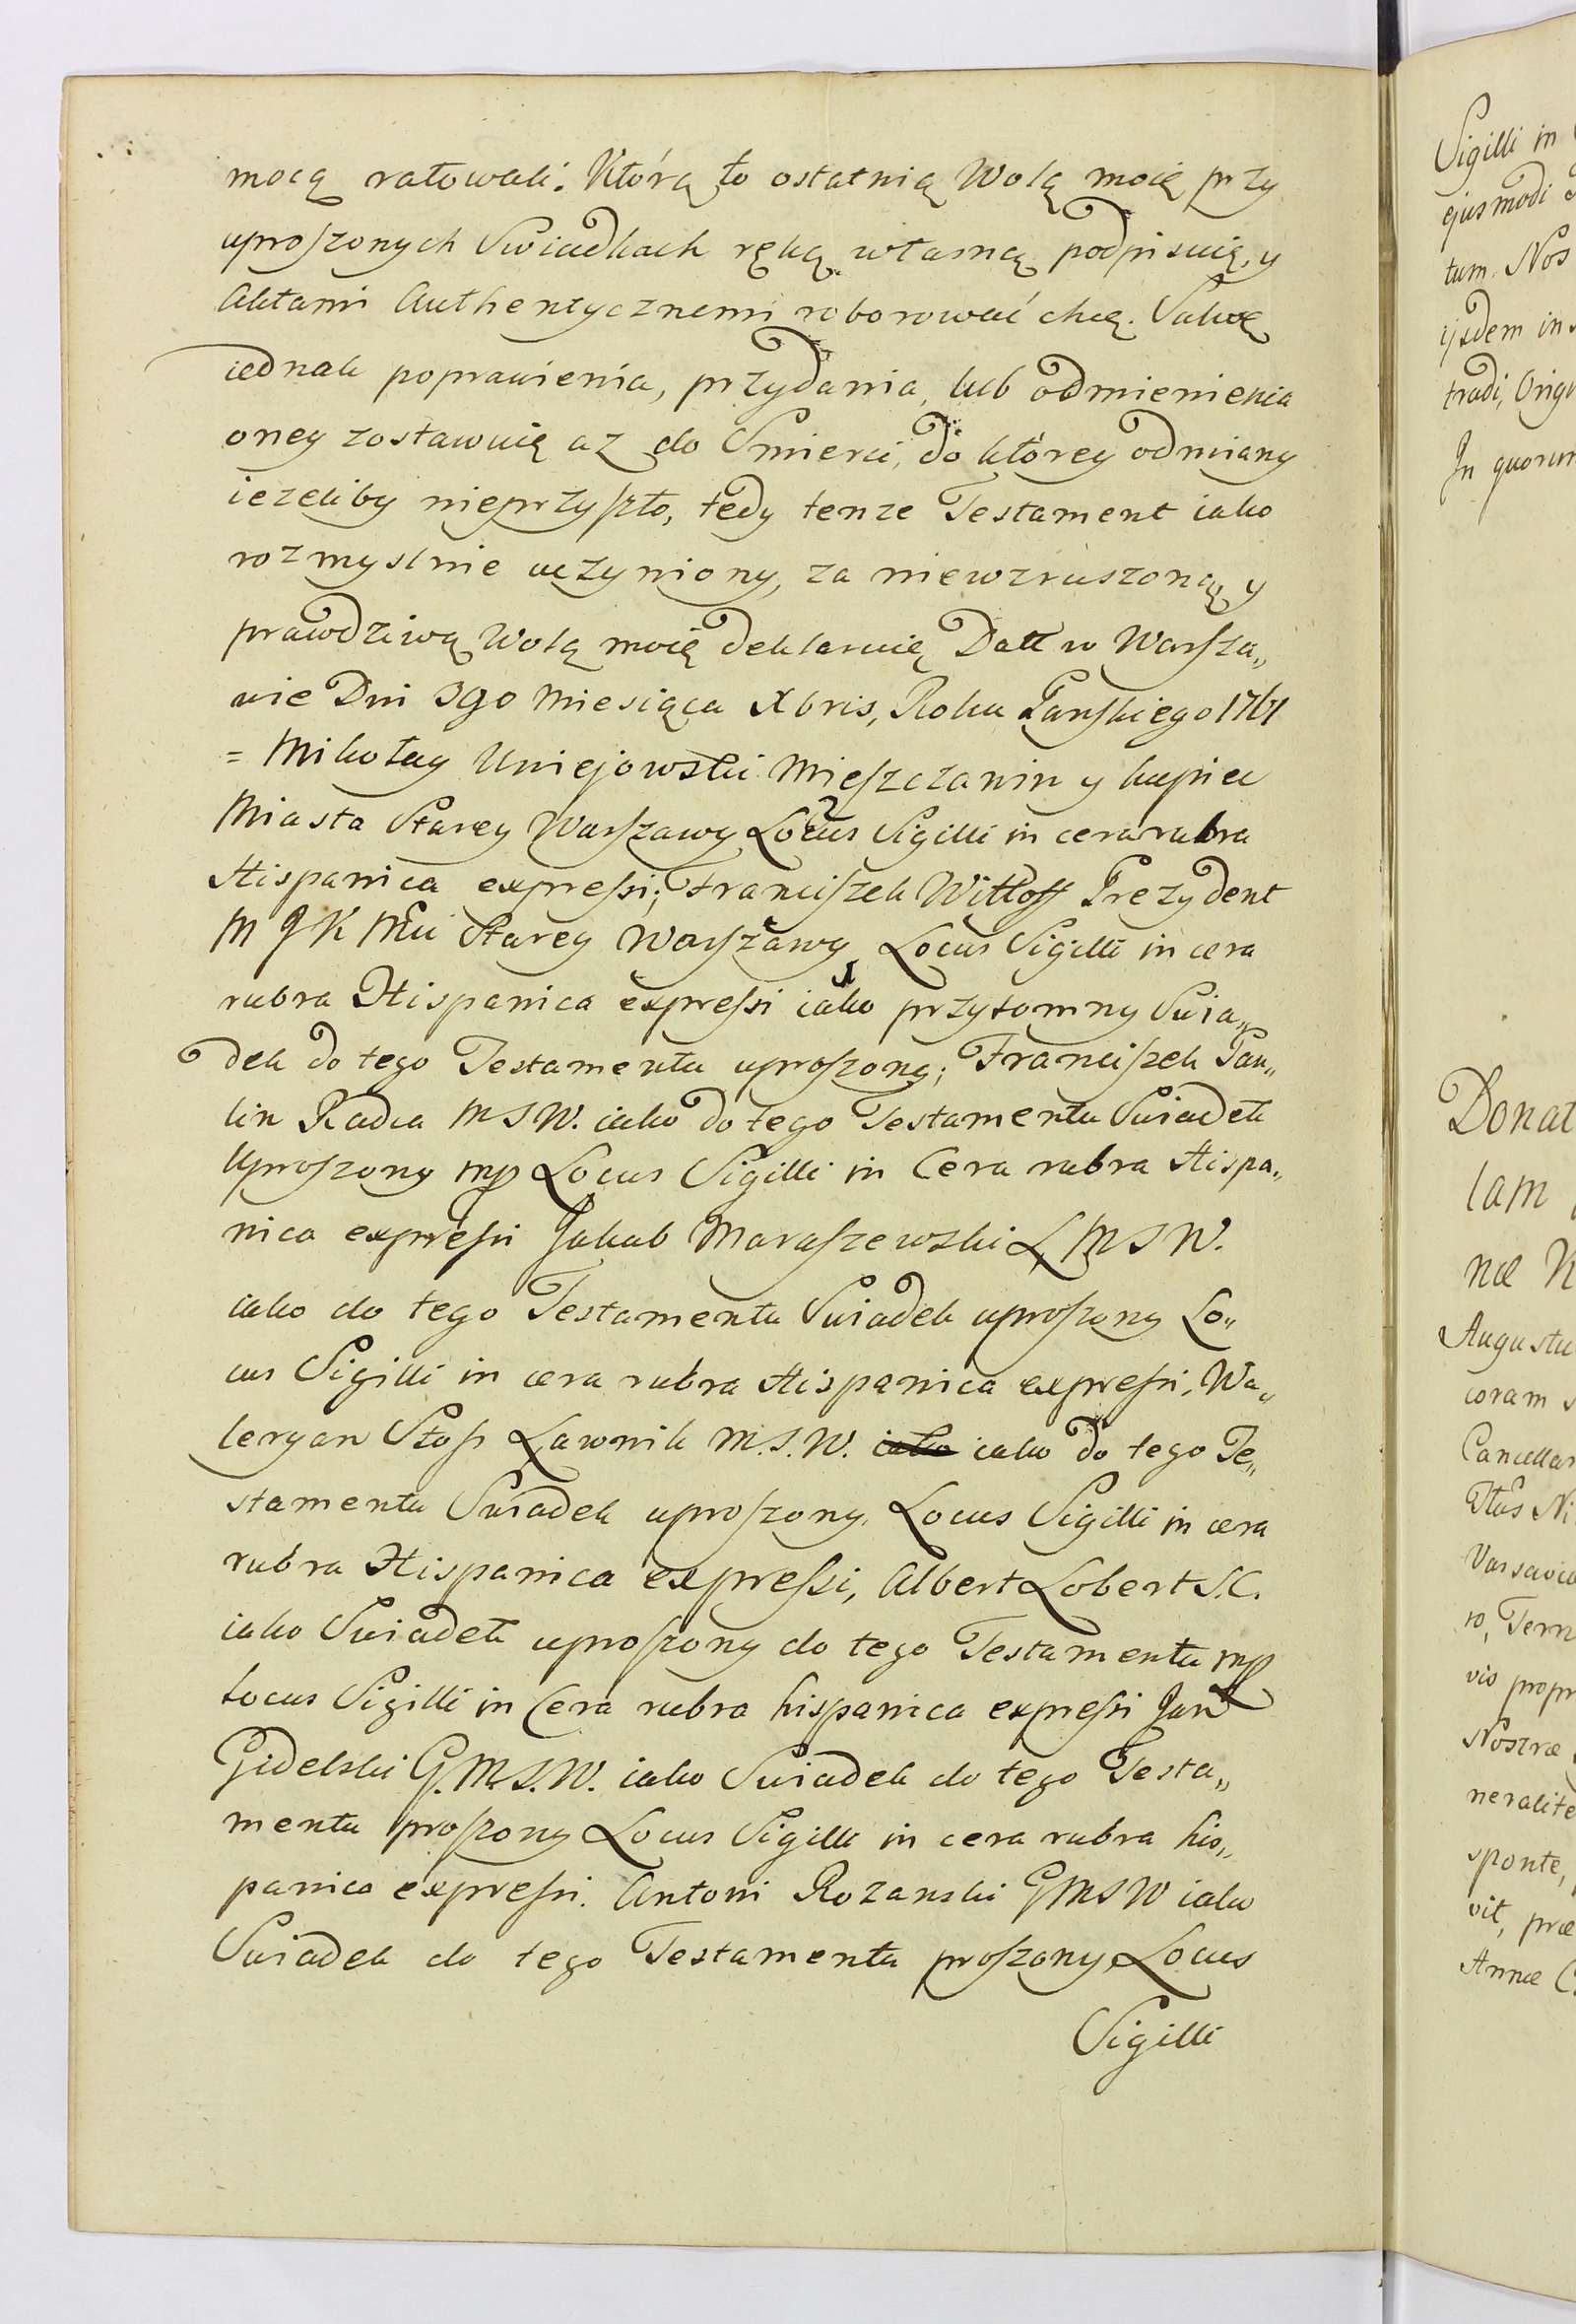 mocą ratowali. Którą to ostatnią Wolą moię przy
uproszonych Swiadkach ręką własną podpisuię, y
Aktami Authentycznemi roborować chcę. Salwę
iednak poprawienia, przydania, lub odmienienia
oney zostawuię az do Smierci, do którey odmiany
iezeliby nieprzyszło, tedy tenze Testament iako
rozmyslnie uczyniony, za niewzruszoną y
prawdziwą Wolą moię deklaruię Datt w Warsza„
wie Dni 3go Miesiąca Xbris, Roku Pańskiego 1761
= Mikołay Uniejowski Mieszczanin y kupiec
Miasta Starey Warszawy Locus Sigilli in cera rubra
Hispanica expressi; Franciszek Withoff Prezydent
M J K Mci Starey Warszawy, Locus Sigilli in cera
rubra Hispanica expressi iako przytomny Swia„
dek do tego Testamentu uproszony; Franciszek Pau„
lin Radca M S W. iako do tego Testamentu Swiadek
Uproszony mp Locus Sigilli in Cera rubra Hispa„
nica expressi Jakub Maraszewski Ł M S W.
iako do tego Testamentu Swiadek uproszony Lo„
cus Sigilli in cera rubra Hispanica expressi, Wa„
leryan Stoss Ławnik M.S.W. iako iako do tego Te„
stamentu Swiadek uproszony, Locus Sigilli in cera
rubra Hispanica expressi, Albert Lobert S.C.
iako Swiadek uproszony do tego Testamentu mp
Locus Sigilli in Cera rubra hispanica expressi Jan
Gidelski G.M.S.W. iako Swiadek do tego Testa„
mentu proszony Locus Sigilli in cera rubra his„
panica expressi. Antoni Rozanski G M S W iako
Swiadek do tego Testamentu proszony, Locus
Sigilli
Sigilli in
ejusmodi
tum. Nos
ijsdem in
tradi, Orig
In quorum
Donat
lam
næ
Augustu
coram
Cancellar
Ni
Varsavia
ro, Term
vis propr
Nostræ
neralite
sponte,
vit, præ
Annæ C